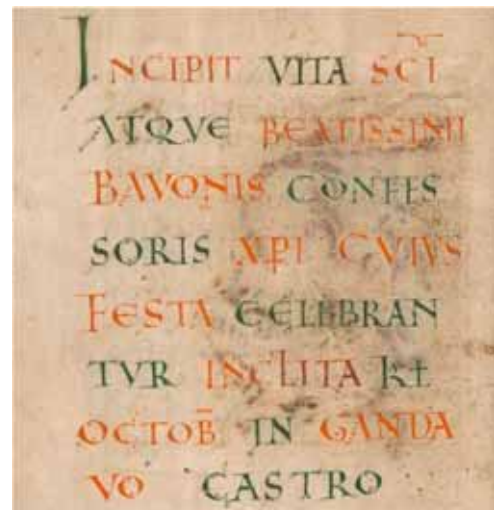 INCIPIT VITA SC̄I
ATQVE BEATISSIMI
BAVONIS CONFES
SORIS XP̄I CVIVS
FESTA CELEBRAN
TVR INCLITA kł
OCTOB̄ IN GANDA
VO CASTRO